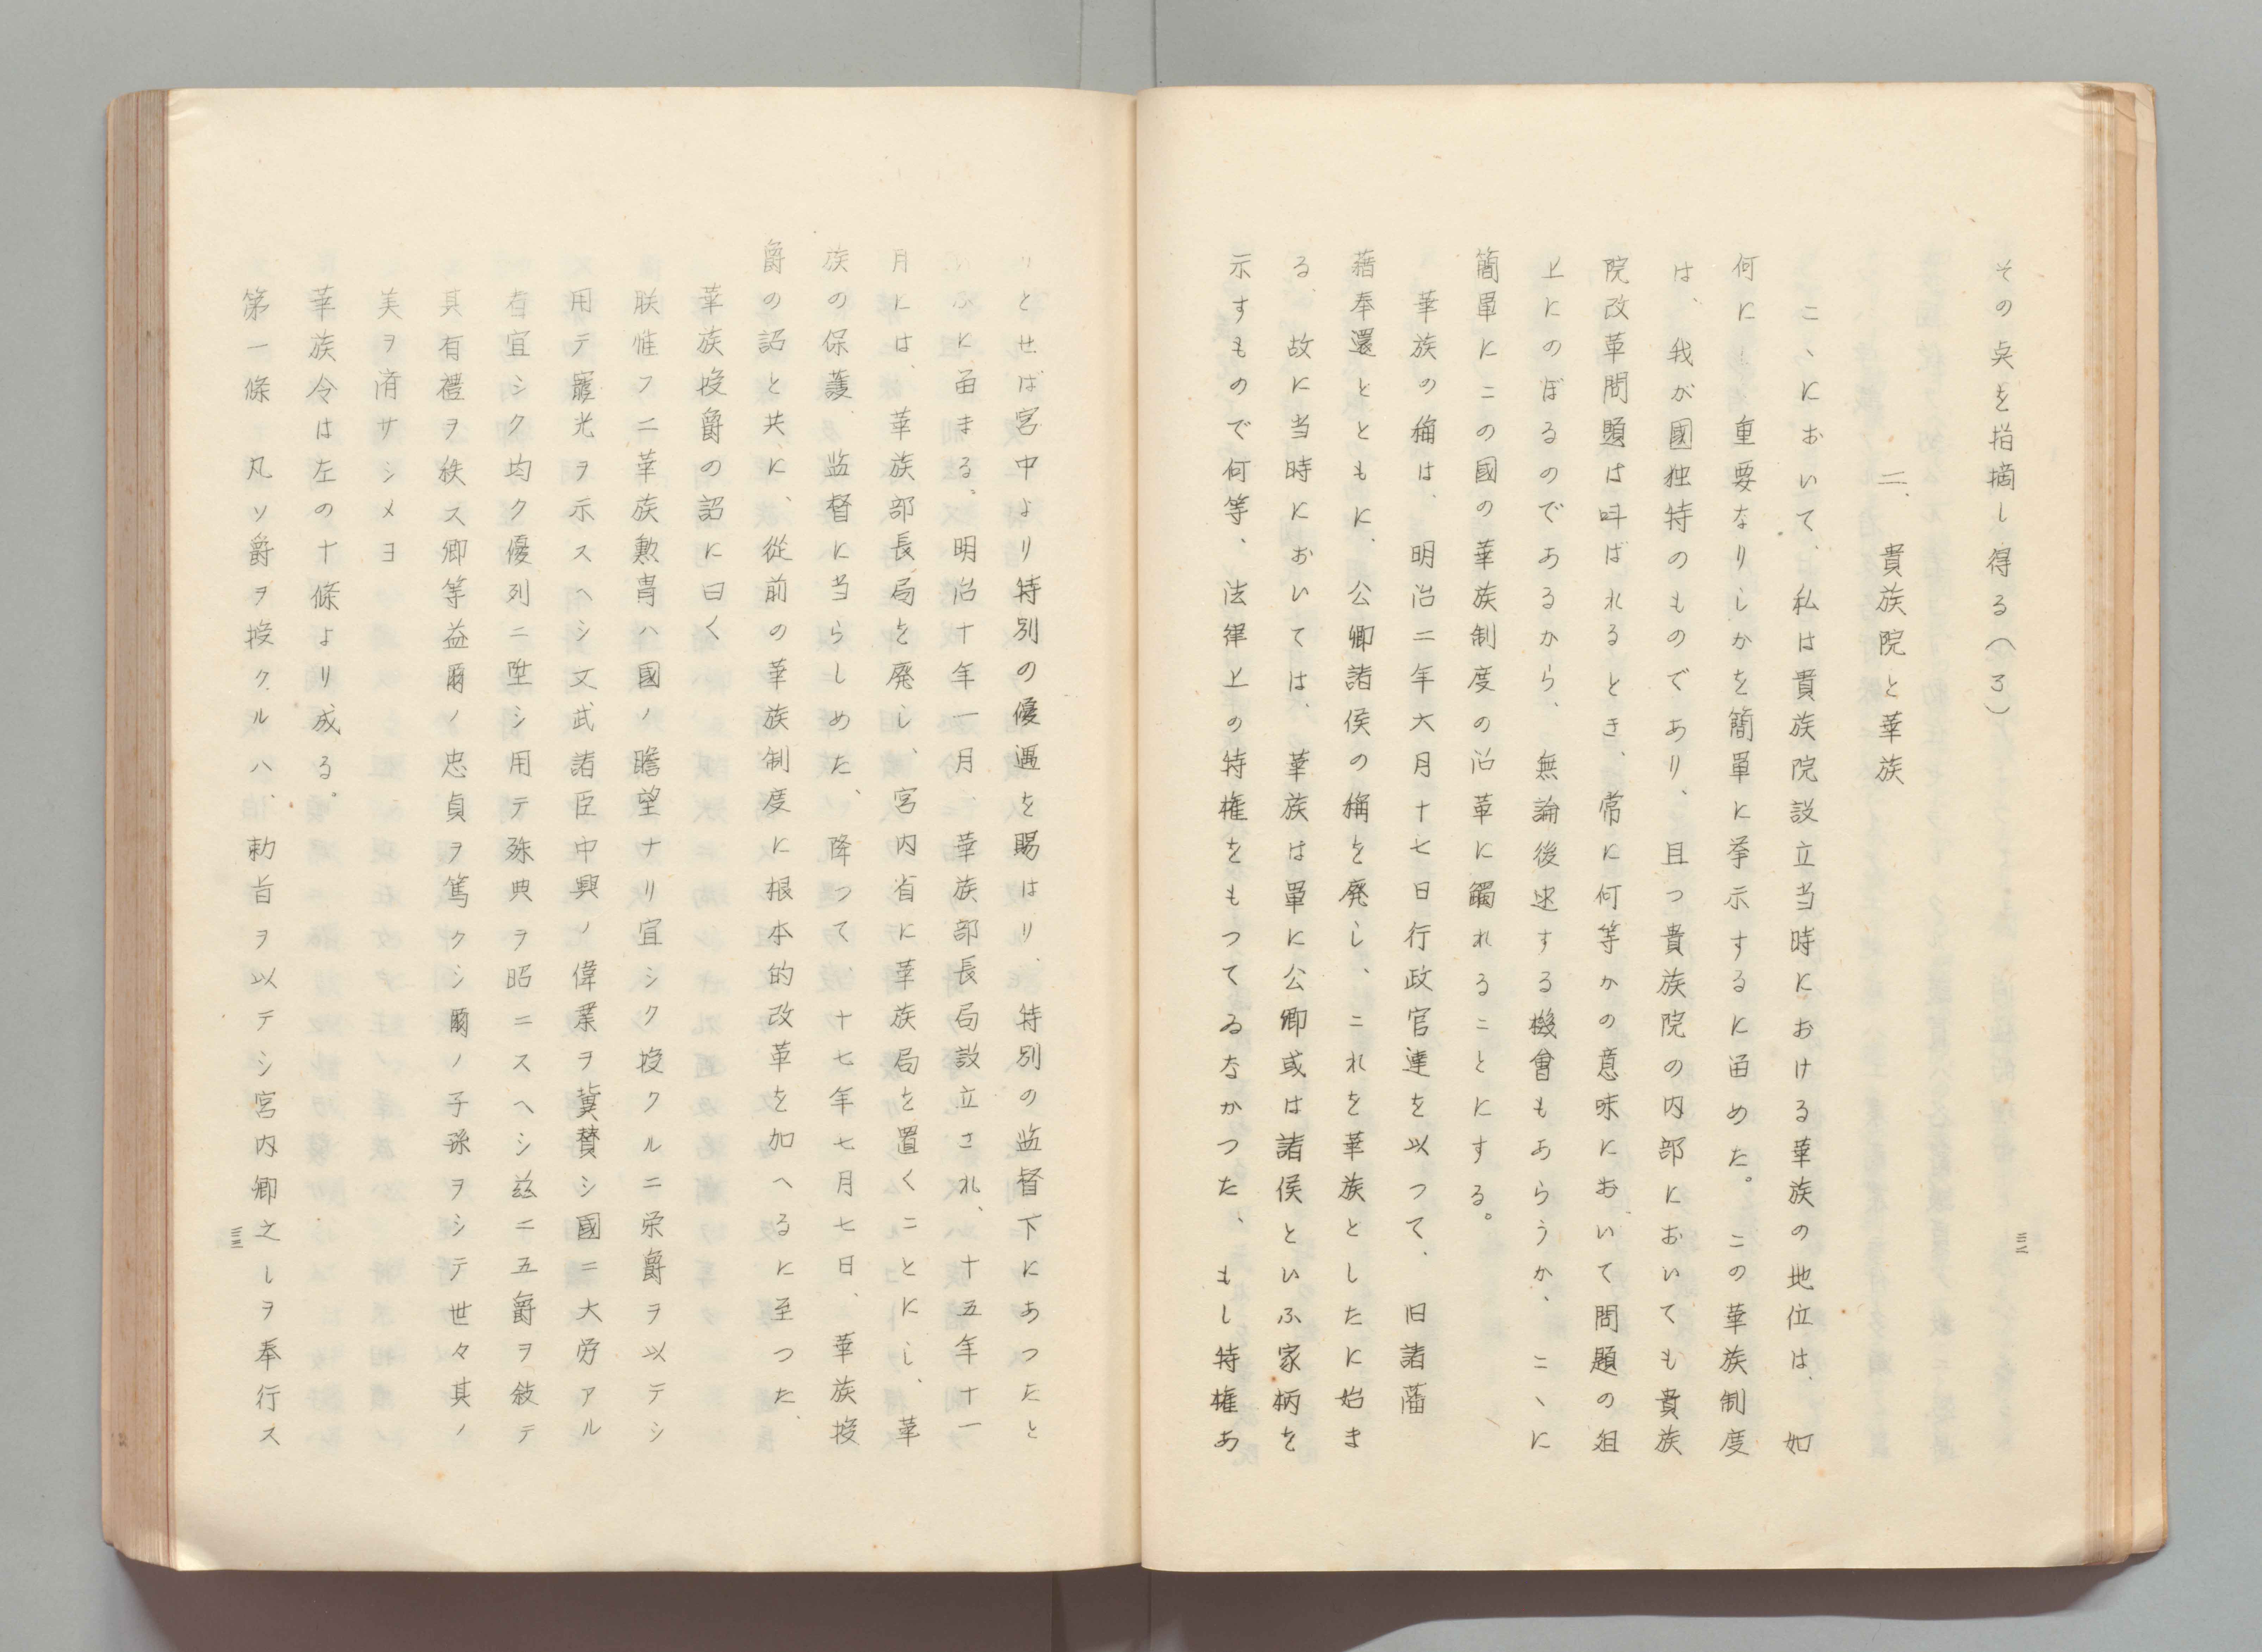 その点を指摘し得る（了）
二、貴族院と華族
こゝにおいて、私は貴族院設立当時における華族の地位は、如
何に重要なりしかを簡單に挙示するに留めた。この華族制度
は、我が國独特のものであり、且つ貴族院の内部においても貴族
院改革問題は叫ばれるとき、常に何等かの意味において問題の俎
上にのぼるのであるから、無論後述する機會もあらうか、こゝに
簡單にこの國の華族制度の沿革に觸れることにする。
華族の稱は、明治二年六月十七日行政官達を以つて、旧諸藩
藉奉還とともに、公卿諸侯の稱を廃し、これを華族としたに始ま
る、故に当時においては、華族は單に公卿或は諸侯といふ家柄を
示すもので何等、法律上の特権をもつてゐなかつた、もし特権あ
りとせば宮中より特別の優遇を賜はり、特別の监督下にあつたと
いふに留まる、明治十年一月、華族部長局設立され、十五年十一
月には、華族部長局を廃し、宮内省に華族局を置くことにし、華
族の保護 监督に当らしめた、降つて、十七年七月七日、華族授
爵の詔と共に、從前の華族制度に根本的改革を加へるに至つた、
華族授爵の詔に曰く
朕惟フニ華族勲冑ハ國ノ瞻望ナリ宜シク授クルニ栄爵ヲ以テシ
用テ寵光ヲ示スヘシ文武諸臣中興ノ偉業ヲ冀賛シ國ニ大労アル
者宜シク均ク優列ニ陞シ用テ殊典ヲ昭ニスヘシ茲ニ五爵ヲ敍テ
其有禮ヲ秩ス卿等益爾ノ忠貞ヲ篤クシ爾ノ子孫ヲシテ世々其ノ
美ヲ済サシメヨ
華族令は左の十條より成る。
第一條 凡ソ爵ヲ授クルハ、勅旨ヲ以テシ宮内卿之レヲ奉行ス